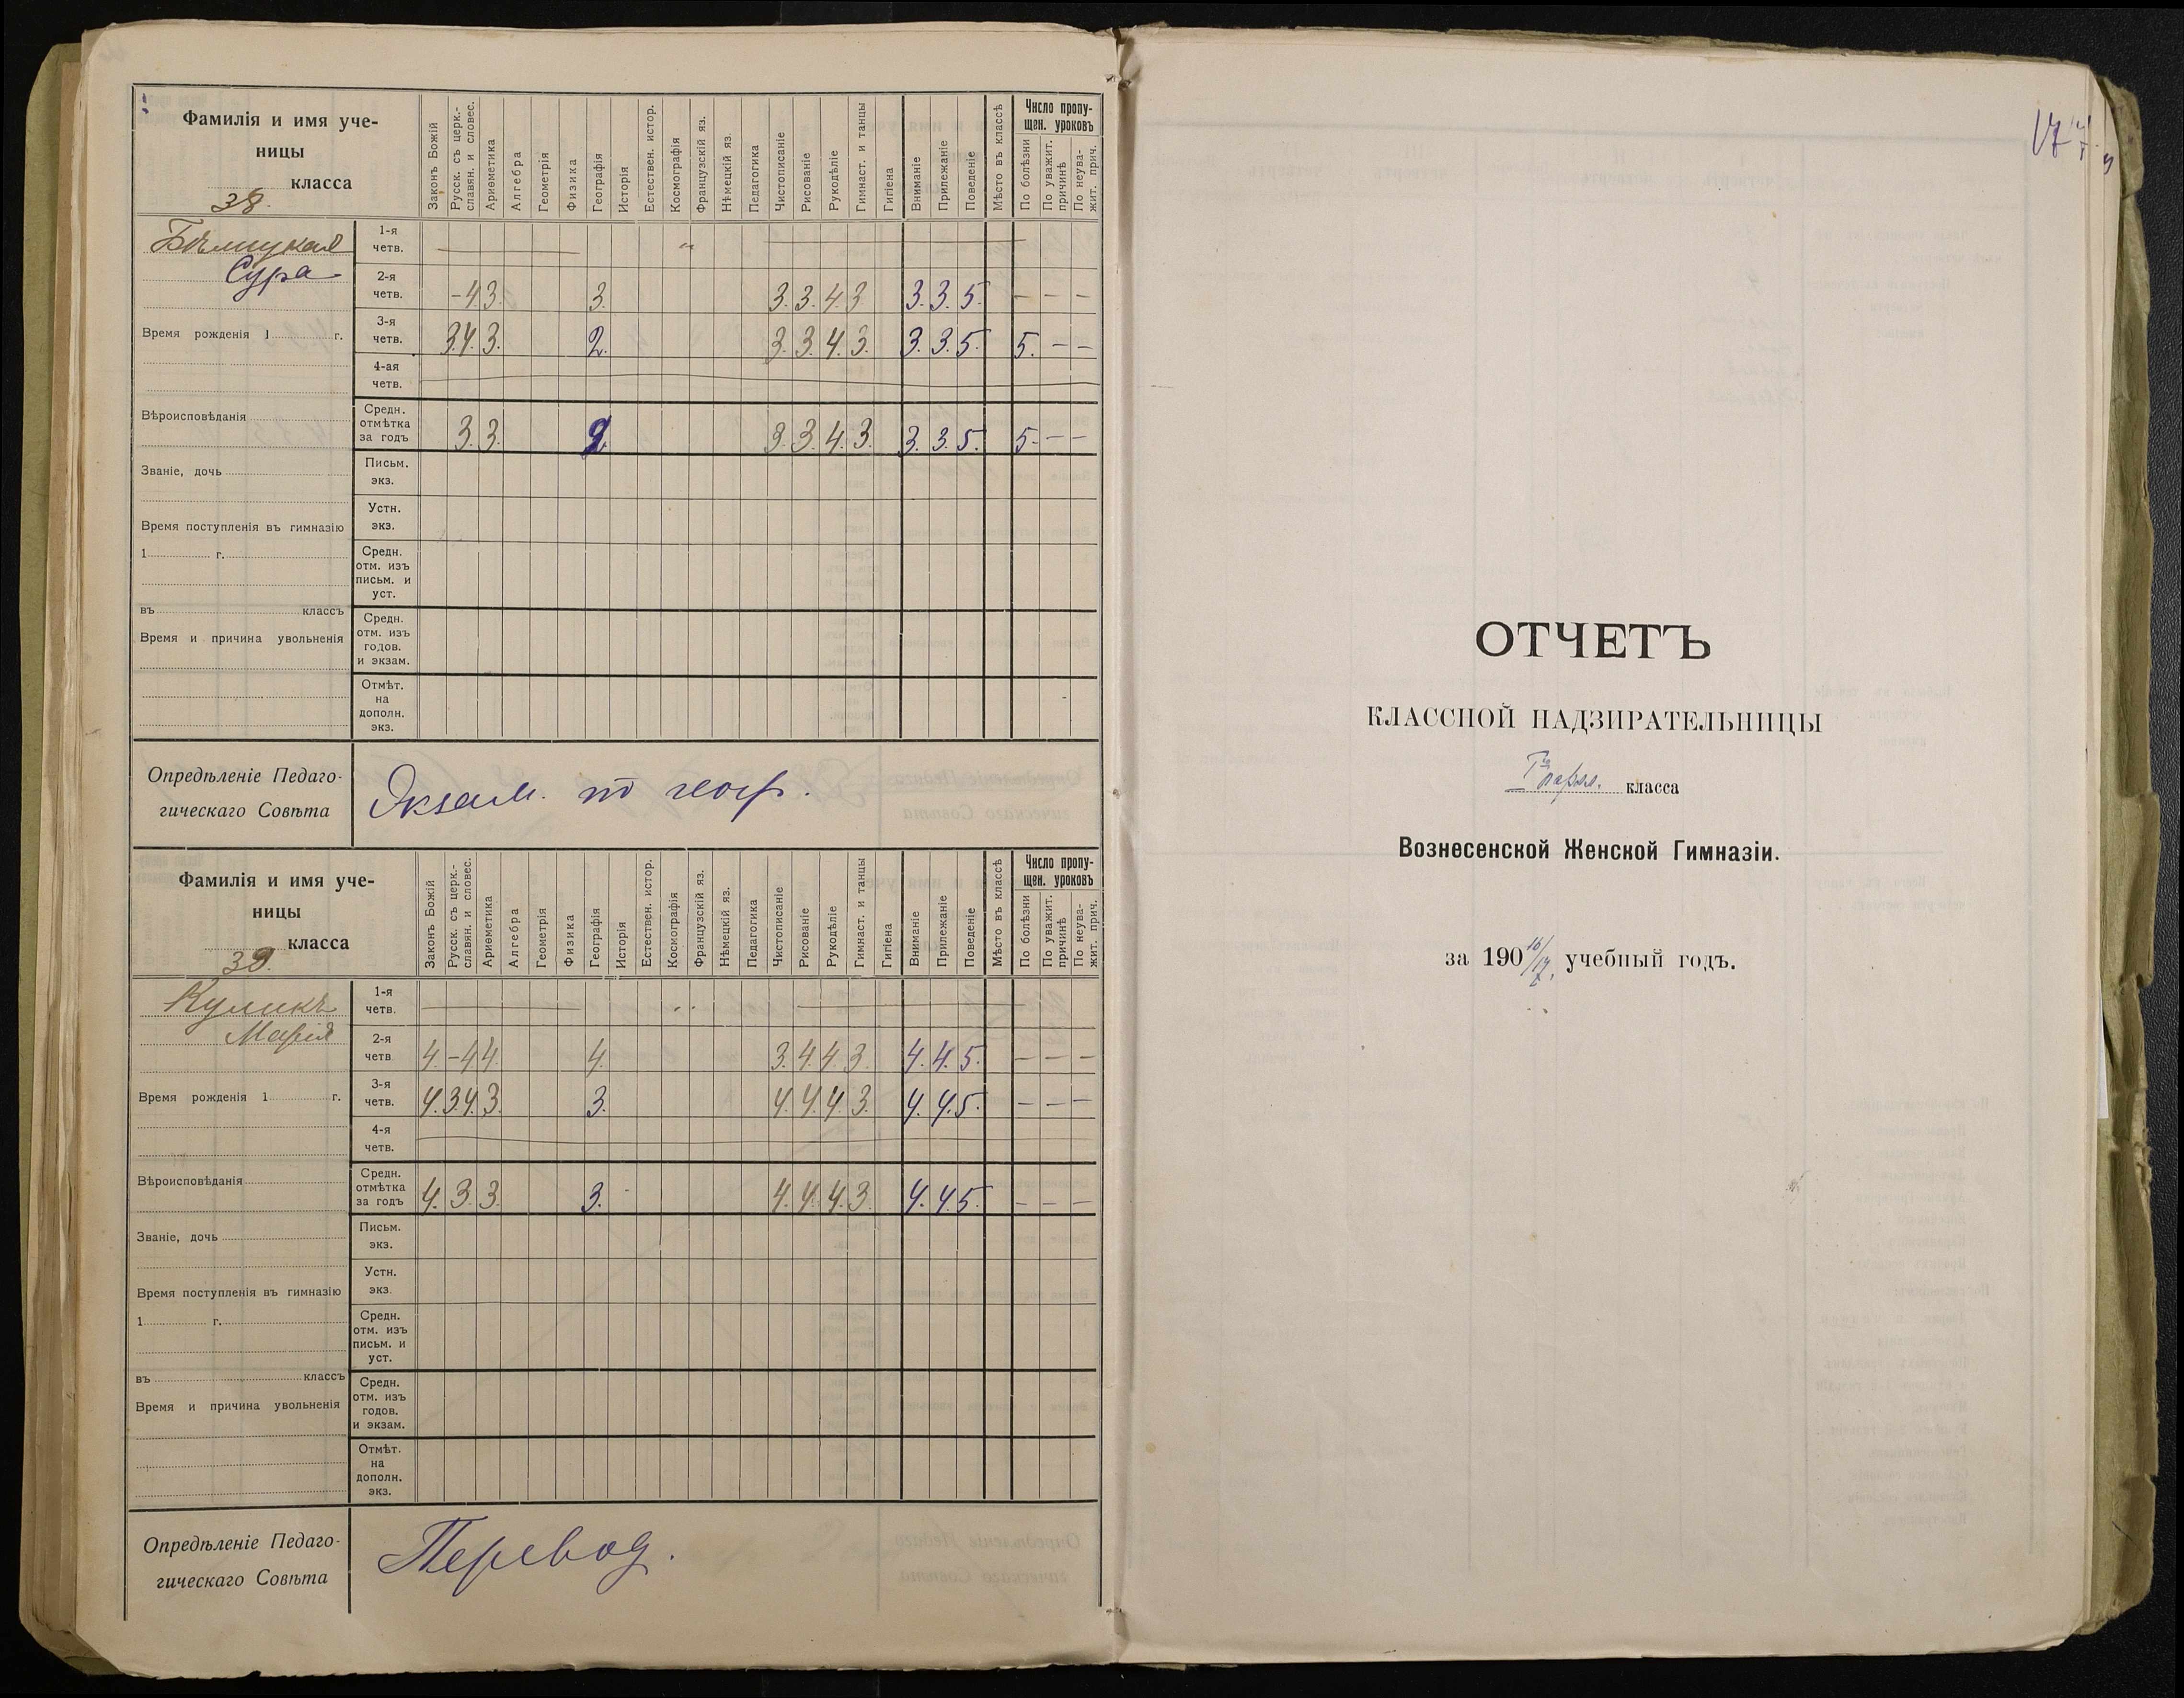 Фамилія и имя уче-
ницы
класса
38.
Законъ Божій
Русск. съ церк.-
славян. и словес.
Ариѳметика
Алгебра
Геометрія
Физика
Географія
Исторія
Естествен. истор.
Космографія
Французскій яз.
Нѣмецкій яз.
Педагогика
Чистописаніе
Рисованіе
Рукодѣліе
Гимнаст. и танцы
Гигіена
Вниманіе
Прилежаніе
Поведеніе
Мѣсто въ классѣ
Число пропу-
щен. уроковъ
По болѣзни
По уважит.
причинѣ
По неува-
жит. прич.
Сура
1-я
четв.
2-я
четв. -4 3. 3. 3. 3. 4. 3 3. 3. 5. — — —
Время рожденія 1 г.
3-я
четв. 3.4. 3. 2. 3. 3. 4. 3. 3. 3. 5. 5. — —
4-ая
четв.
Вѣроисповѣданія
Средн.
отмѣтка
за годъ 3. 3. 2. 3. 3. 4. 3. 3. 3. 5. 5. — —
Званіе, дочь
Письм.
экз.
Время поступленія въ гимназію
Устн.
экз.
1 г.
Средн.
отм. изъ
письм. и
уст.
въ классъ
Время и причина увольненія
Средн.
отм. изъ
годов.
и экзам.
Отмѣт.
на
дополн.
экз.
Опредѣленіе Педаго-
гическаго Совѣта
Экзам. по геогр.
Фамилія и имя уче-
ницы
класса
39.
Законъ Божій
Русск. съ церк.-
славян. и словес.
Ариѳметика
Алгебра
Геометрія
Физика
Географія
Исторія
Естествен. истор.
Космографія
Французскій яз.
Нѣмецкій яз.
Педагогика
Чистописаніе
Рисованіе
Рукодѣліе
Гимнаст. и танцы
Гигіена
Вниманіе
Прилежаніе
Поведеніе
Мѣсто въ классѣ
Число пропу-
щен. уроковъ
По болѣзни
По уважит.
причинѣ
По неува-
жит. прич.
Куликъ
Марія
1-я
четв.
2-я
четв 4. -4 4. 4. 3. 4. 4. 3 4. 4. 5. — — —
Время рожденія 1 г.
3-я
четв. 4. 3.4. 3. 3. 4. 4. 4. 3. 4. 4. 5. — — —
4-я
четв.
Вѣроисповѣданія
Средн.
отмѣтка
за годъ 4. 3. 3. 3. 4. 4. 4. 3. 4. 4. 5. — — —
Званіе, дочь
Письм.
экз.
Время поступленія въ гимназію
Устн.
экз.
1 г.
Средн.
отм. изъ
письм. и
уст.
въ классъ
Время и причина увольненія
Средн.
отм. изъ
годов.
и экзам.
Отмѣт.
на
дополн.
экз.
Опредѣленіе Педаго-
гическаго Совѣта
Перевод.
ОТЧЕТЪ
КЛАССНОЙ НАДЗИРАТЕЛЬНИЦЫ
класса
Вознесенской Женской Гимназіи.
за 190 16/17 учебный годъ.